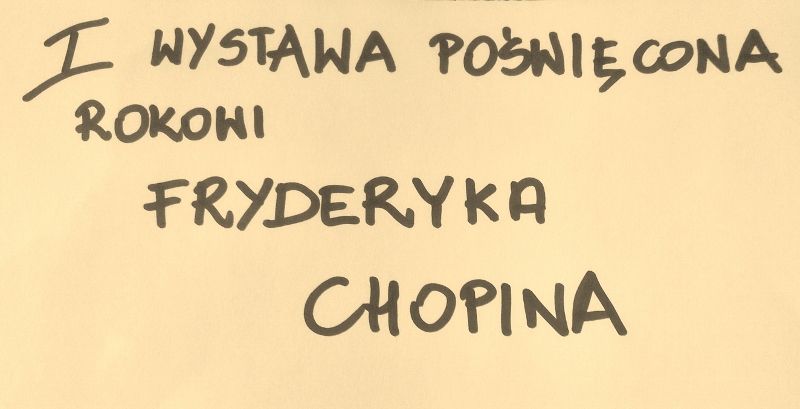 I WYSTAWA POŚWIĘCONA
ROKOWI
FRYDERYKA
CHOPINA